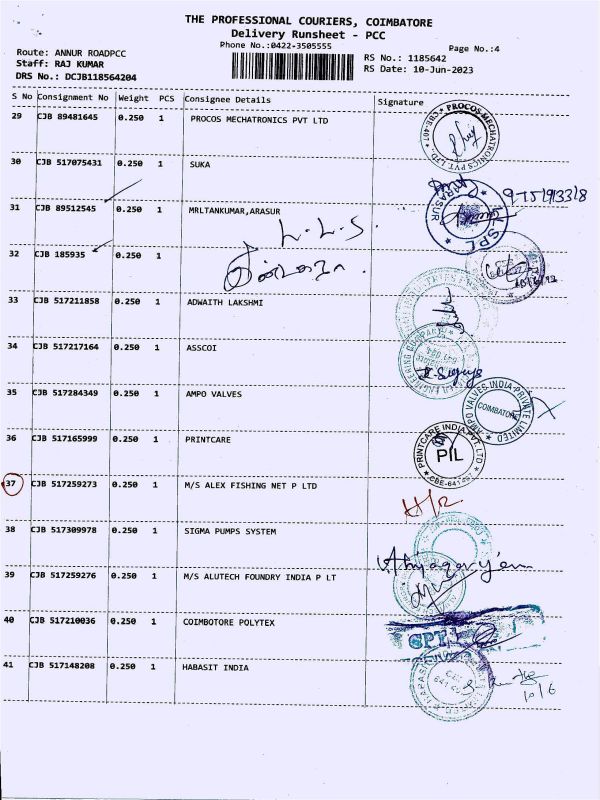 THE PROFESSIONAL COURIERS, COIMBATORE
Delivery Runsheet - PCC
Phone No.:0422-3505555
Page No.:4
Route: ANNUR ROADPCC
Staff: RAJ KUMAR
DRS No.: DCJB118564204
RS No.: 1185642
RS Date: 10-Jun-2023
S No Consignment No Weight PCS Consignee Details Signature
29 CJB 89481645 0.250 1 PROCOS MECHATRONICS PVT LTD
PROCOS MECHATRONICS PVT. LTD CBE-407
30 CJB 517075431 0.250 1 SUKA
31 CJB 89512545 0.250 1 MRLTANKUMAR,ARASUR
ARASUR SPL
L.L.S.
32 CJB 185935 0.250 1
33 CJB 517211858 0.250 1 ADWAITH LAKSHMI
34 CJB 517217164 0.250 1 ASSCOI
35 CJB 517284349 0.250 1 AMPO VALVES
AMPO VALVES INDIA PRIVATE LIMITED
COIMBATORE
36 CJB 517165999 0.250 1 PRINTCARE
PRINTCARE INDIA PVT. LTD
PIL
37 CJB 517259273 0.250 1 M/S ALEX FISHING NET P LTD
38 CJB 517309978 0.250 1 SIGMA PUMPS SYSTEM
39 CJB 517259276 0.250 1 M/S ALUTECH FOUNDRY INDIA P LT
40 CJB 517210036 0.250 1 COIMBOTORE POLYTEX
41 CJB 517148208 0.250 1 HABASIT INDIA
10/6